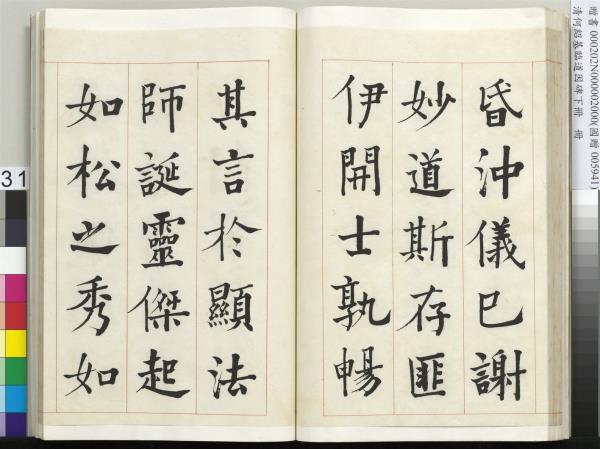 昏沖儀已謝
妙道斯存匪
伊開士孰暢
其言於顯法
師誕靈傑起
如松之秀如
贈書 000202N000002000(國贈 005941)
清何紹基臨道因碑下冊 冊
31